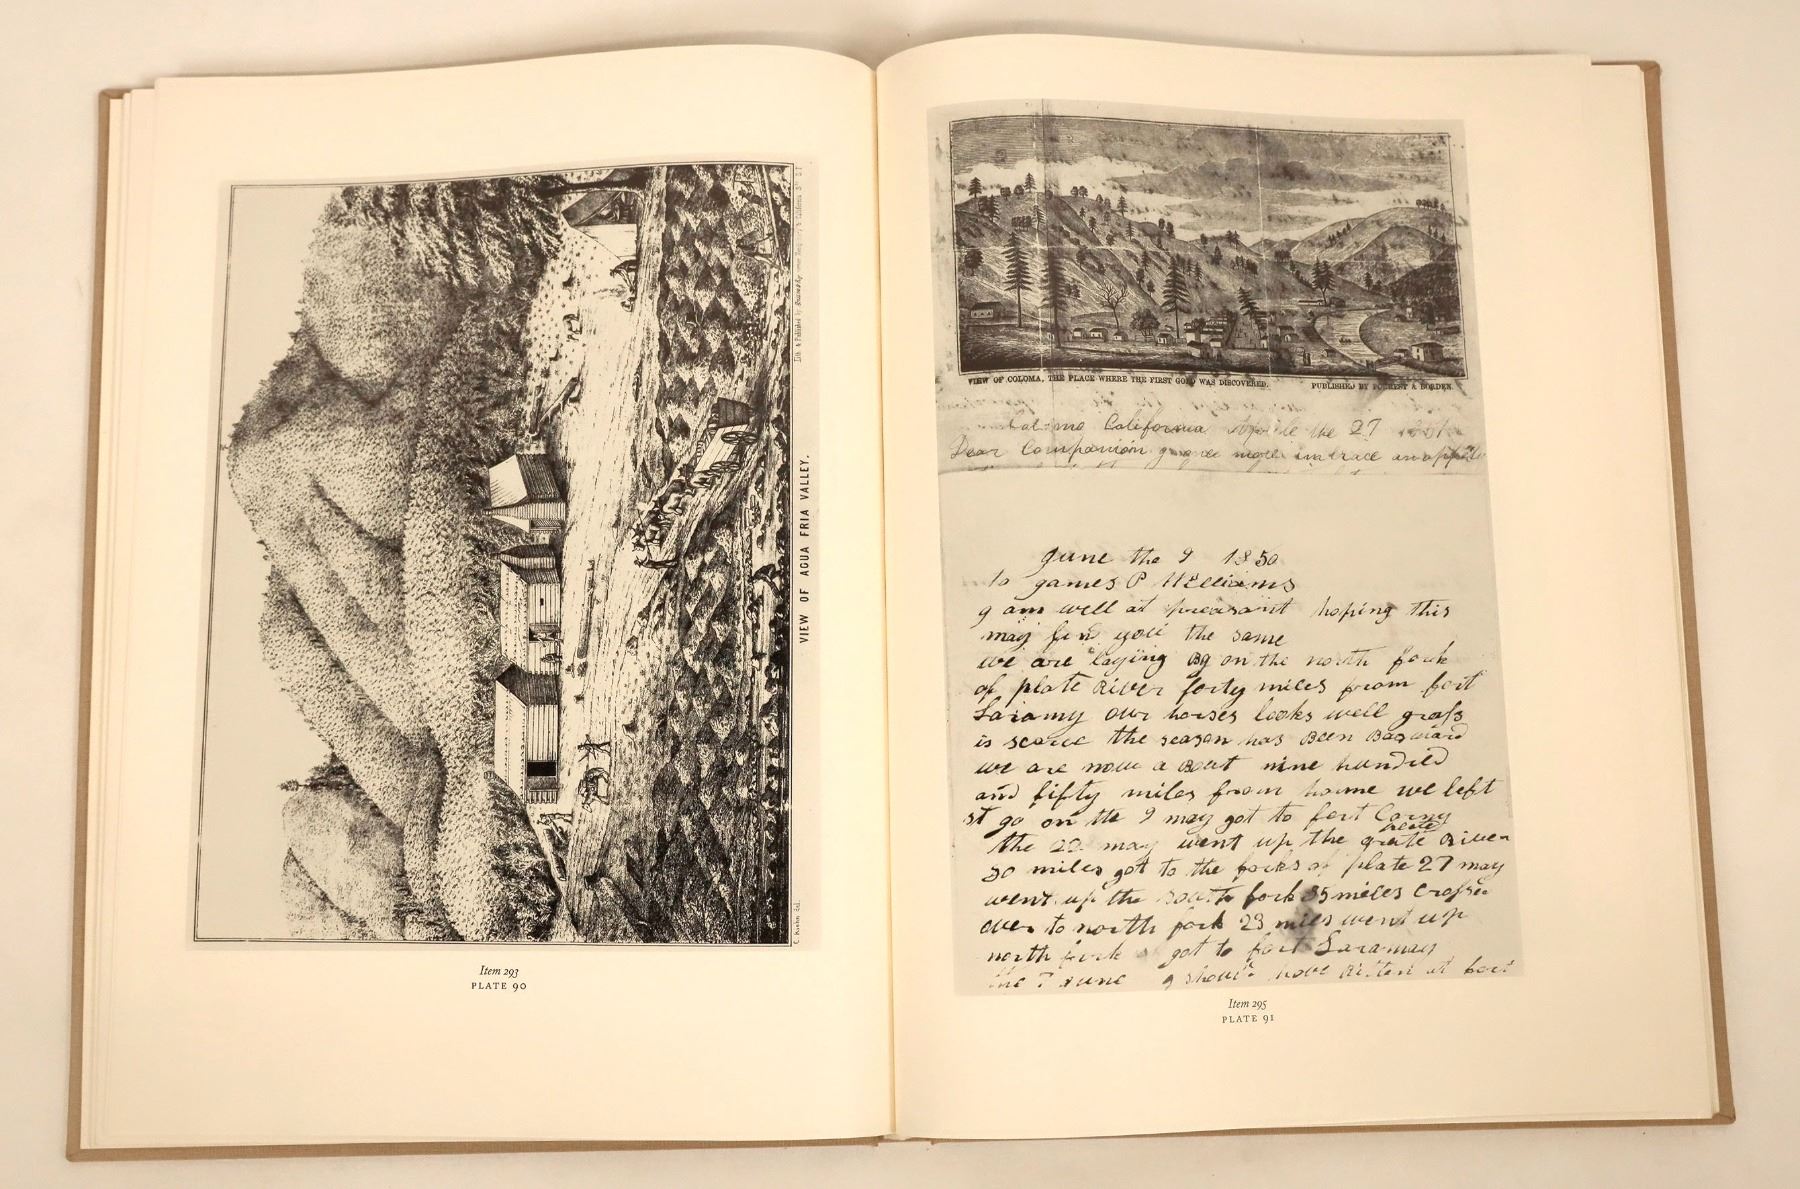 VIEW OF AGUA FRIA VALLEY.
C. Kuchn del.
Lith. & Published by
California St.
Item 293
PLATE 90
VIEW OF COLOMA, THE PLACE WHERE THE FIRST GOLD WAS DISCOVERED.
PUBLISHED BY FORREST & BORDEN.
California the 27
Dear Companion more
June the 9 1850
to games P Williams
g am well at preasant hoping this
may find you the same
we are laying By on the north fork
of plate River forty miles from fort
Laramy our horses looks well grass
is scarce the season has Been Backward
we are now a Bout nine hundred
and fifty miles from home we left
st go on the 9 may got to fort Carny
the 22 may went up the plate River
miles got to the forks of plate 27 may
went up the south fork 85 miles Crosse
over to north fork 23 miles went up
north fork got to fort Laramay
the 7 June g should have Ritten at fort
Item 295
PLATE 91